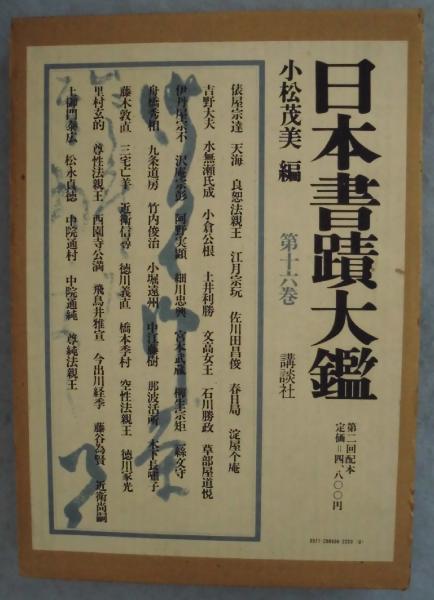 日本書蹟大鑑
小松茂美 編
第十六巻
講談社
第二回配本
定価=四、八〇〇円
俵屋宗達 天海 良恕法親王 江月宗玩 佐川田昌俊 春日局 淀屋个庵
吉野大夫 水無瀬氏成 小倉公根 土井利勝 文高女王 石川勝政 草部屋道悦
伊丹屋宗不 沢庵宗彭 阿野実顕 細川忠興 宮本武蔵 柳生宗矩 一絲文守
舟橋秀相 九条道房 竹内俊治 小堀遠州 中江藤樹 那波活所 木下長嘯子
藤木敦直 三宅亡羊 近衛信尋 徳川義直 橋本季村 空性法親王 徳川家光
里村玄的 尊性法親王 西園寺公満 飛鳥井雅宣 今出川経季 藤谷為賢 近衛尚嗣
土御門泰広 松永貞徳 中院通村 中院通純 尊純法親王